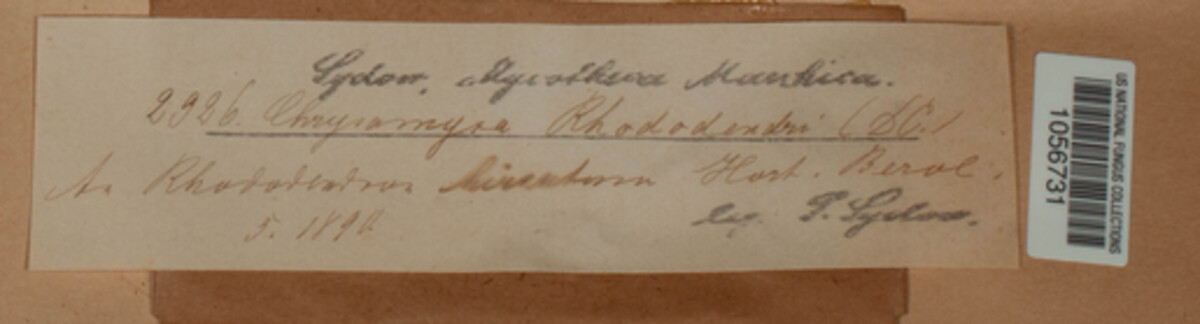 Sydow, Mycotheca Marchica.
2926. Chrysomyxa Rhododendri (DC.)
An Rhododendron hirsutum Hort. Berol.
5. 1890
leg. P. Sydow.
US NATIONAL FUNGUS COLLECTIONS
1056731